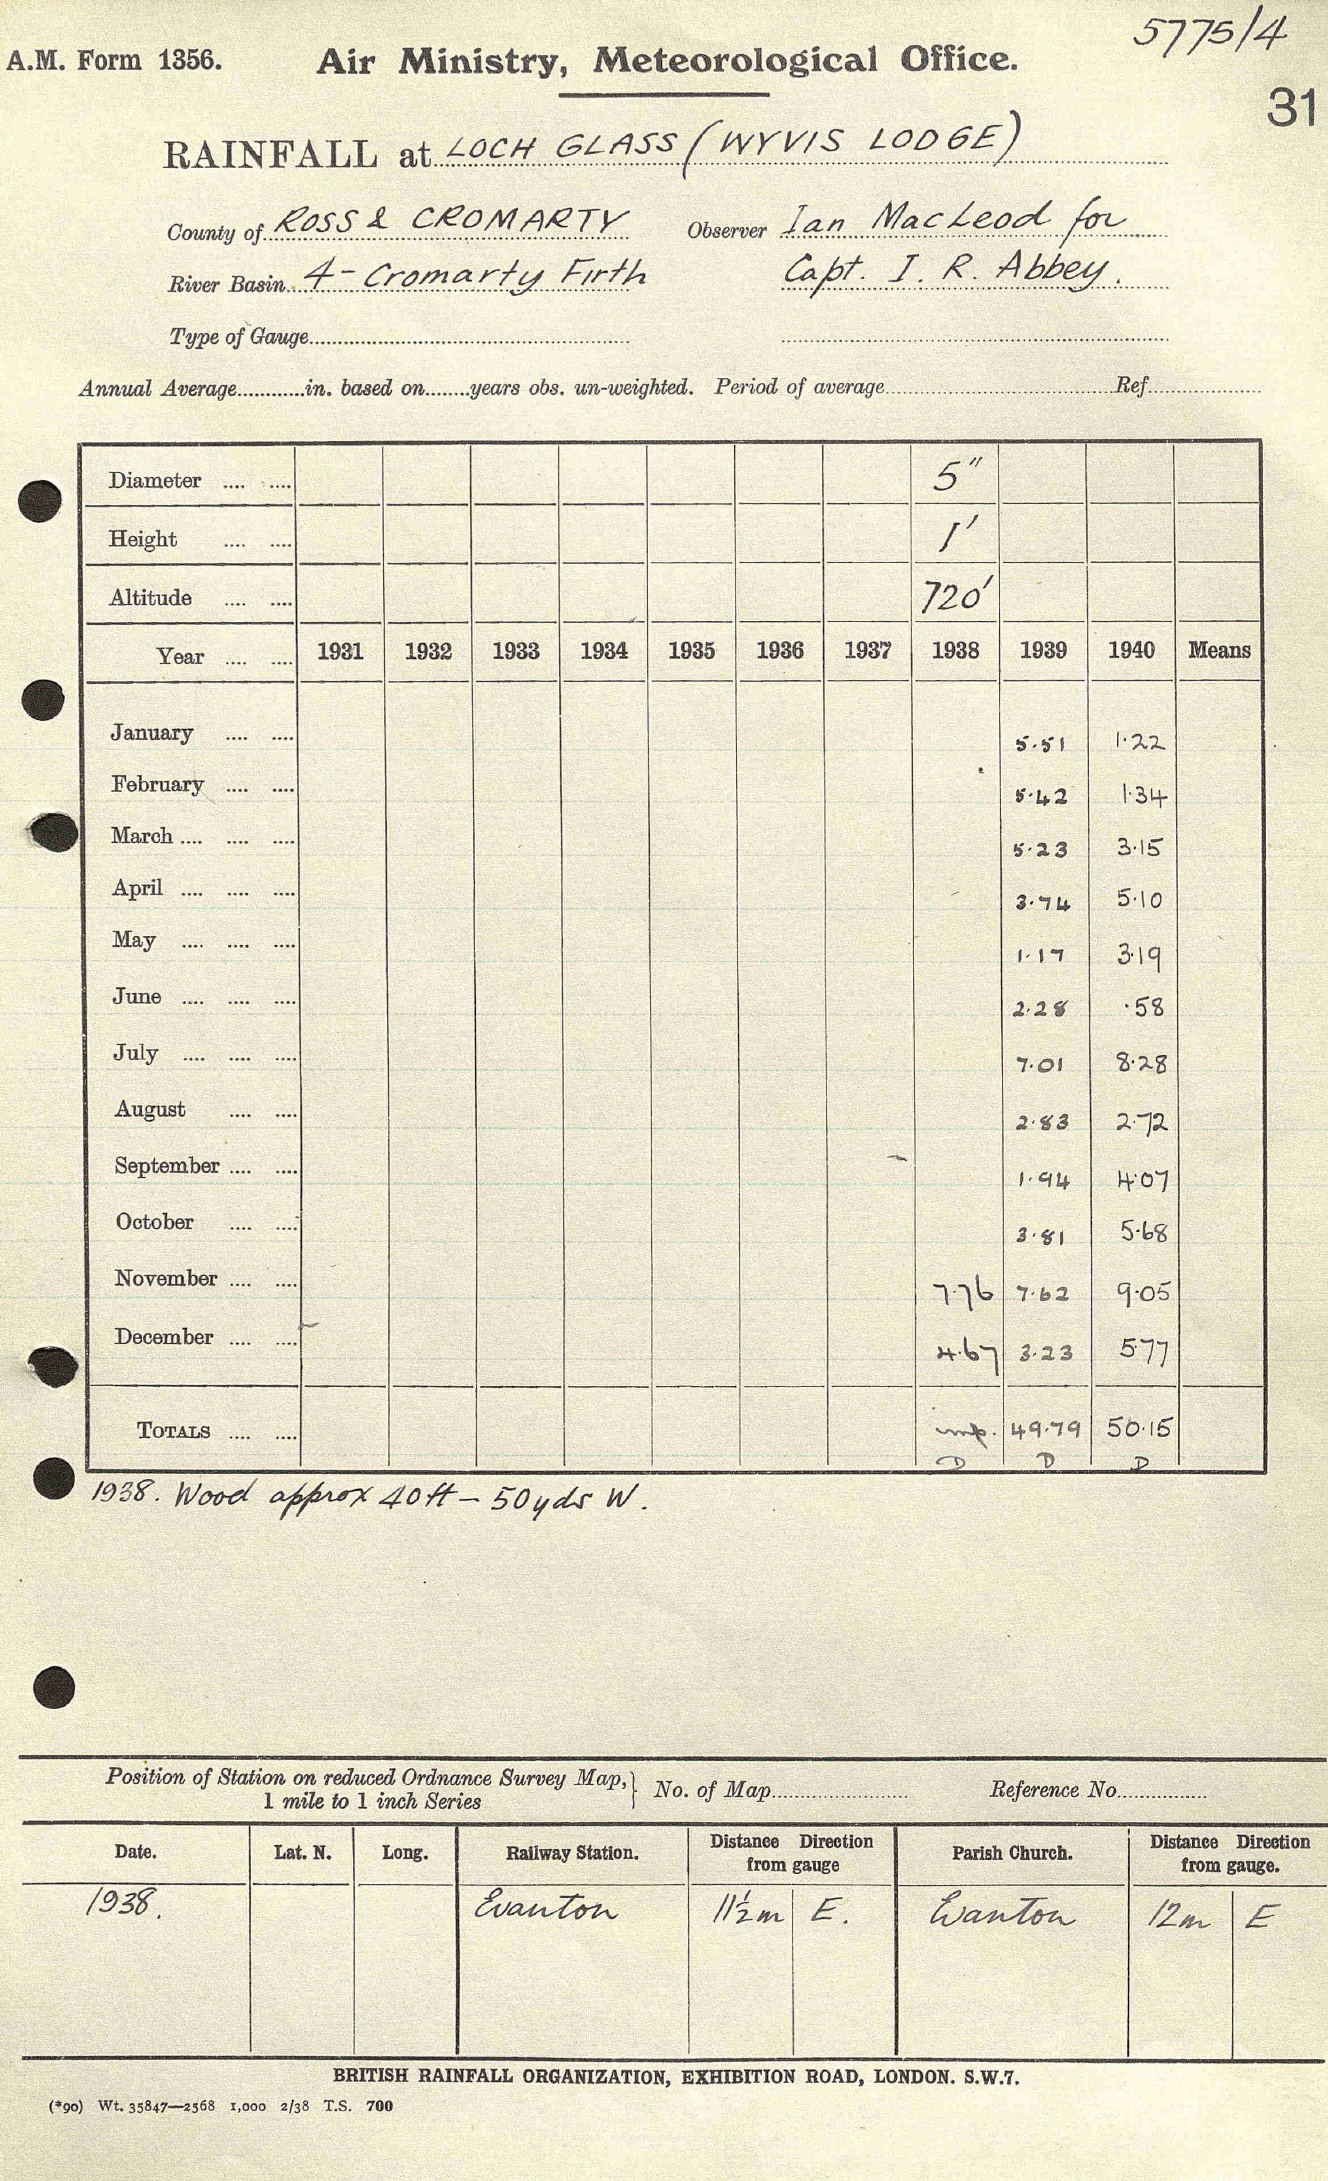 5775/4
A.M. Form 1356. Air Ministry, Meteorological Office.
31
RAINFALL at LOCH GLASS (WYVIS LODGE)
County of ROSS & CROMARTY Observer Ian MacLeod for
River Basin 4 - Cromarty Firth Capt. I. R. Abbey.
Type of Gauge
Annual Average............in. based on........years obs. un-weighted. Period of average Ref
Diameter .... .... 5"
Height .... .... 1'
Altitude .... .... 720'
Year .... .... 1931 1932 1933 1934 1935 1936 1937 1938 1939 1940 Means
January .... .... 5.51 1.22
February .... .... 5.42 1.34
March .... .... .... 5.23 3.15
April .... .... .... 3.74 5.10
May .... .... .... 1.17 3.19
June .... .... .... 2.28 .58
July .... .... .... 7.01 8.28
August .... .... 2.83 2.72
September .... .... 1.94 4.07
October .... .... 3.81 5.68
November .... .... 7.76 7.62 9.05
December .... .... 4.67 3.23 5.77
TOTALS .... .... imp. 49.79 50.15
D D D
1938. Wood approx 40ft - 50yds W.
Position of Station on reduced Ordnance Survey Map, 1 mile to 1 inch Series } No. of Map Reference No
Date. Lat. N. Long. Railway Station. Distance Direction from gauge Parish Church. Distance Direction from gauge.
1938. Evanton 11½m E. Evanton 12m E
BRITISH RAINFALL ORGANIZATION, EXHIBITION ROAD, LONDON. S.W.7.
(*90) Wt. 35847—2568 1,000 2/38 T.S. 700